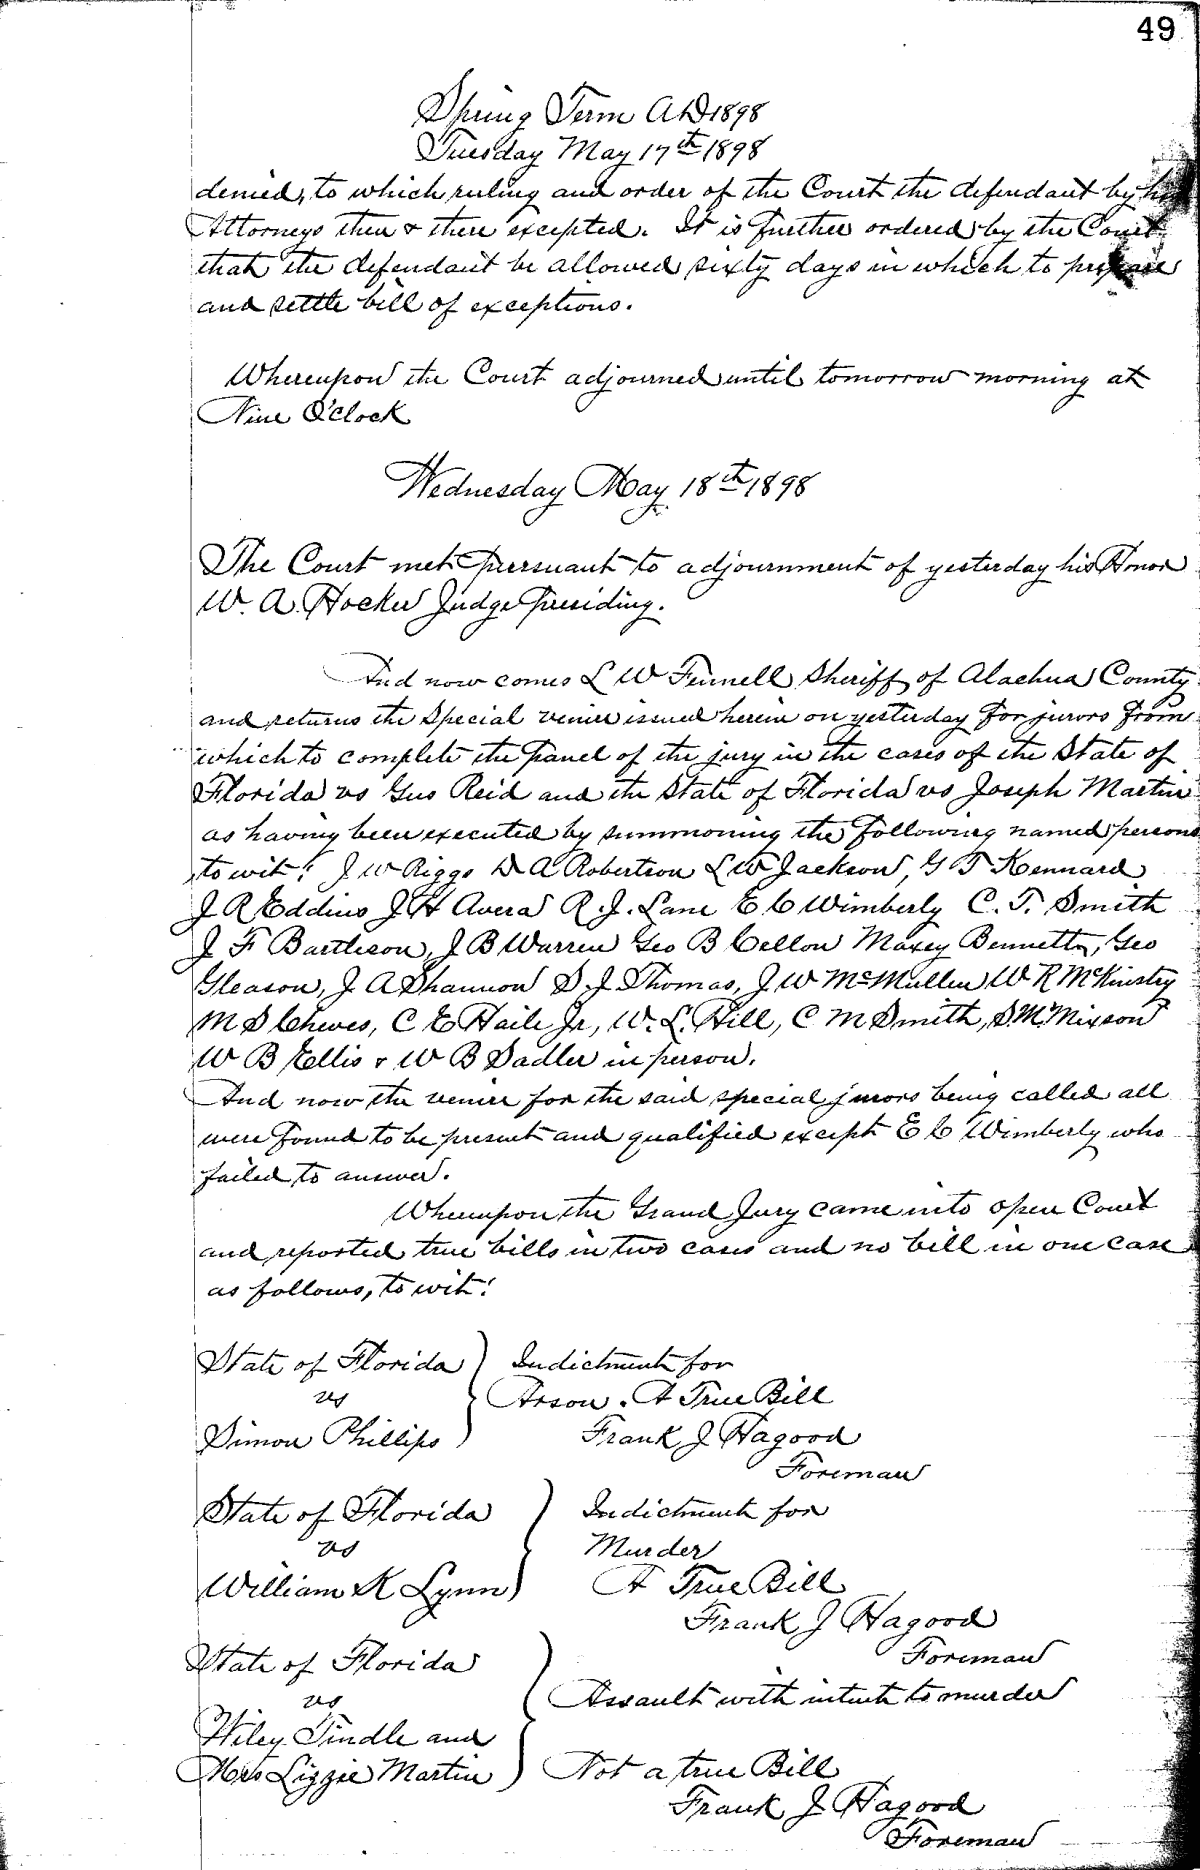 49
Spring Term A D 1898
Tuesday May 17th 1898
denied, to which ruling and order of the Court the defendant by his
Attorneys then & there excepted. It is further ordered by the Court
that the defendant be allowed sixty days in which to prepare
and settle bill of exceptions.
Whereupon the Court adjourned until tomorrow morning at
Nine O'Clock
Wednesday May 18th 1898
The Court met pursuant to adjournment of yesterday his Honor
W. A. Hocker Judge Presiding.
And now comes L W Fennell Sheriff of Alachua County
and returns the Special venire issued herein on yesterday for jurors from
which to complete the panel of the jury in the cases of the State of
Florida vs Gus Reid and the State of Florida vs Joseph Martin
as having been executed by summoning the following named persons
to wit: J W Riggs D A Robertson L W Jackson, G T Kennard
J R Eddins J H Avera R. J. Lane E C Wimberly C. T. Smith
J F Bartleson, J B Warren Geo B Cellon Maxey Bennett, Geo
Gleason, J A Shannon S. J. Thomas, J W McMullen W R McKinstry
M S Cheves, C E Haile Jr, W. L. Hill, C M Smith, S. M. Mixson
W B Ellis & W B Sadler in person.
And now the venire for the said special jurors being called all
were found to be present and qualified except E C Wimberly who
failed to answer.
Whereupon the Grand Jury came into open Court
and reported true bills in two cases and no bill in one case
as follows, to wit:
State of Florida ) Indictment for
vs Arson. A True Bill
Simon Phillips ) Frank J Hagood
Foreman
State of Florida ) Indictment for
vs Murder
William K Lynn ) A True Bill
Frank J Hagood
Foreman
State of Florida
vs Assault with intent to murder
Wiley Tindle and
Mrs Lizzie Martin ) Not a true Bill
Frank J Hagood
Foreman